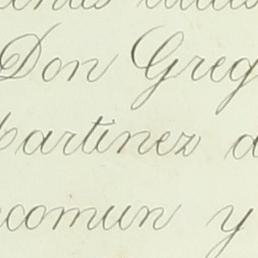 Don Greg
Martinez a
comun y